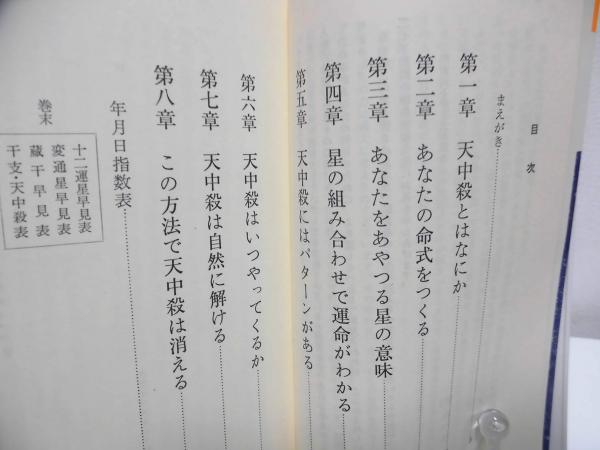 目次
まえがき
第一章 天中殺とはなにか
第二章 あなたの命式をつくる
第三章 あなたをあやつる星の意味
第四章 星の組み合わせで運命がわかる
第五章 天中殺にはパターンがある
第六章 天中殺はいつやってくるか
第七章 天中殺は自然に解ける
第八章 この方法で天中殺は消える
年月日指数表
巻末
十二運星早見表
変通星早見表
蔵干早見表
干支・天中殺表